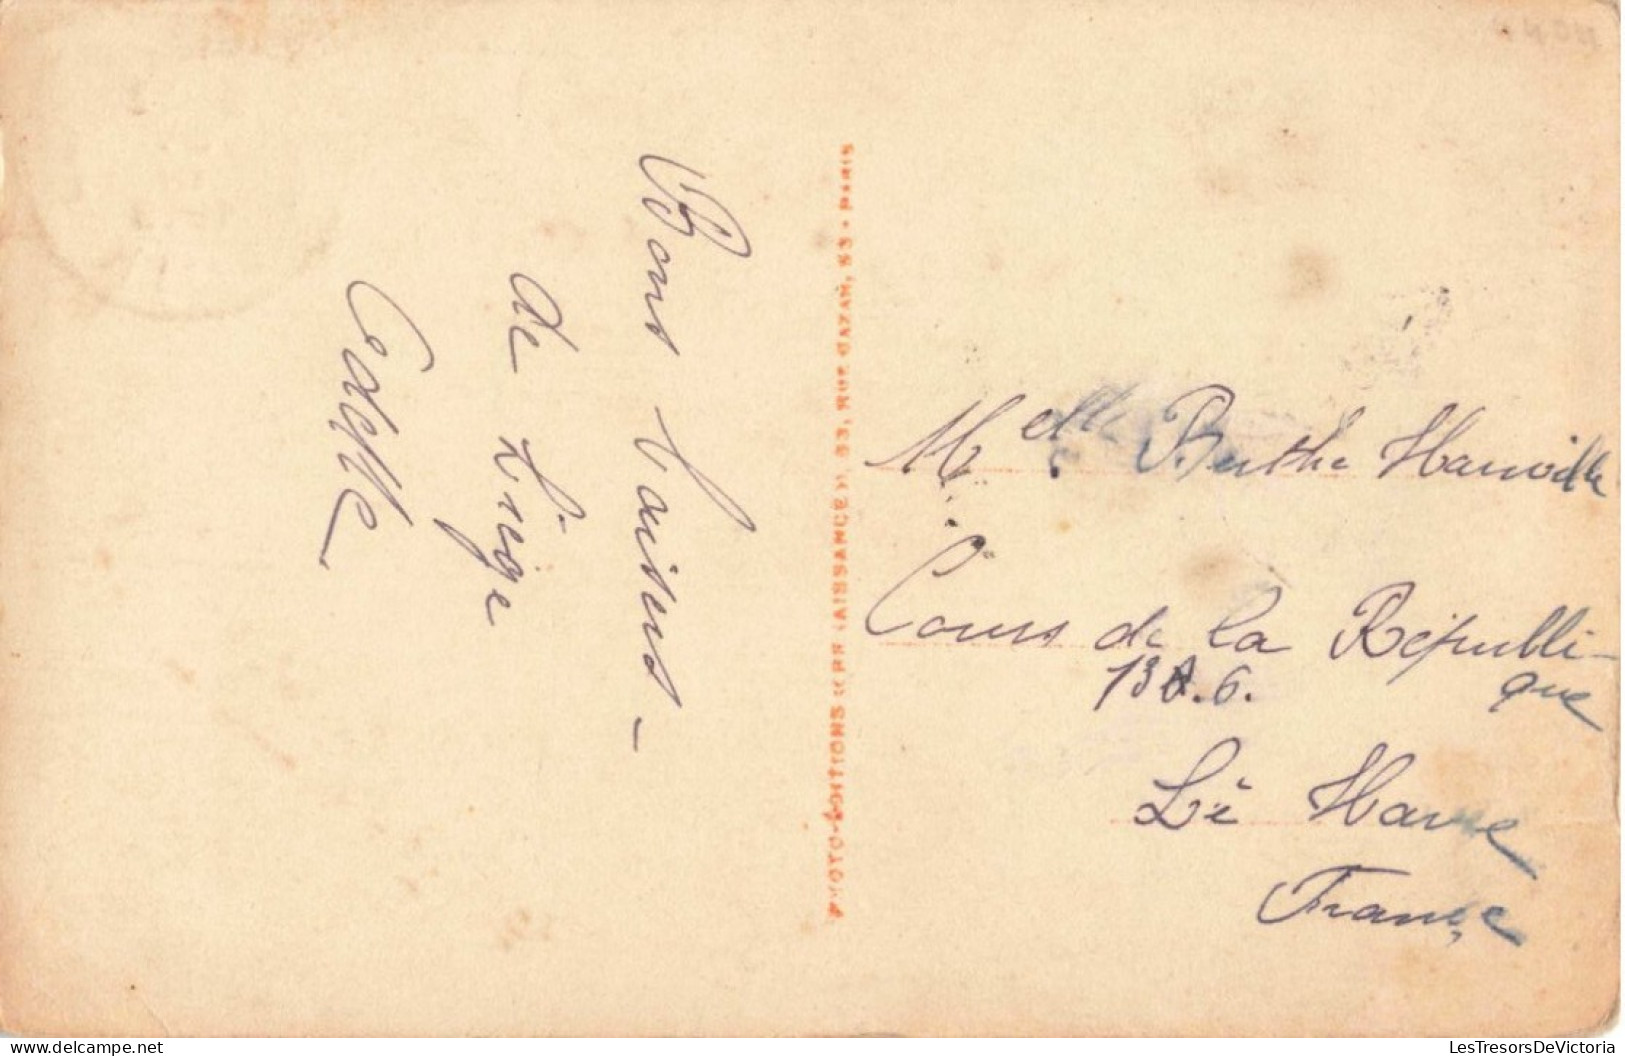 Bons baisers -
de Liège
PHOTO-ÉDITIONS 53, RUE GAZAN, 53 - PARIS
Melle Berthe Hanville
Cours de la Républi-
que
6.
Le Havre
France
www.delcampe.net
LesTresorsDeVictoria